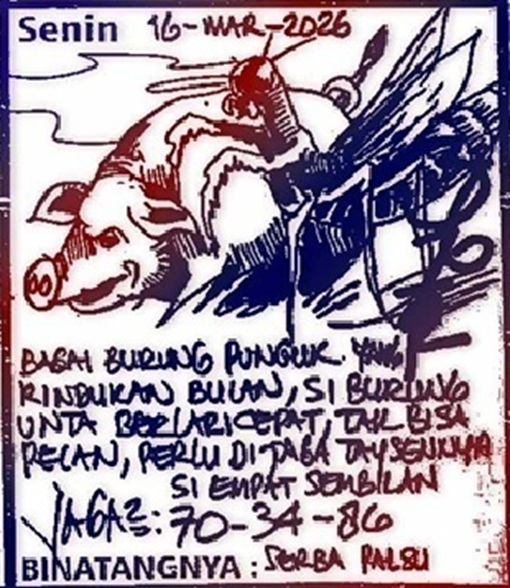 Senin 16-MAR-2026
BAGAI BURUNG PUNGGUK YANG
RINDUKAN BULAN, SI BURUNG
UNTA BERLARI CEPAT, TAK BISA
PELAN, PERLU DI JAGA
SI EMPAT SEMBILAN
: 70-34-86
BINATANGNYA : SERBA PALSU